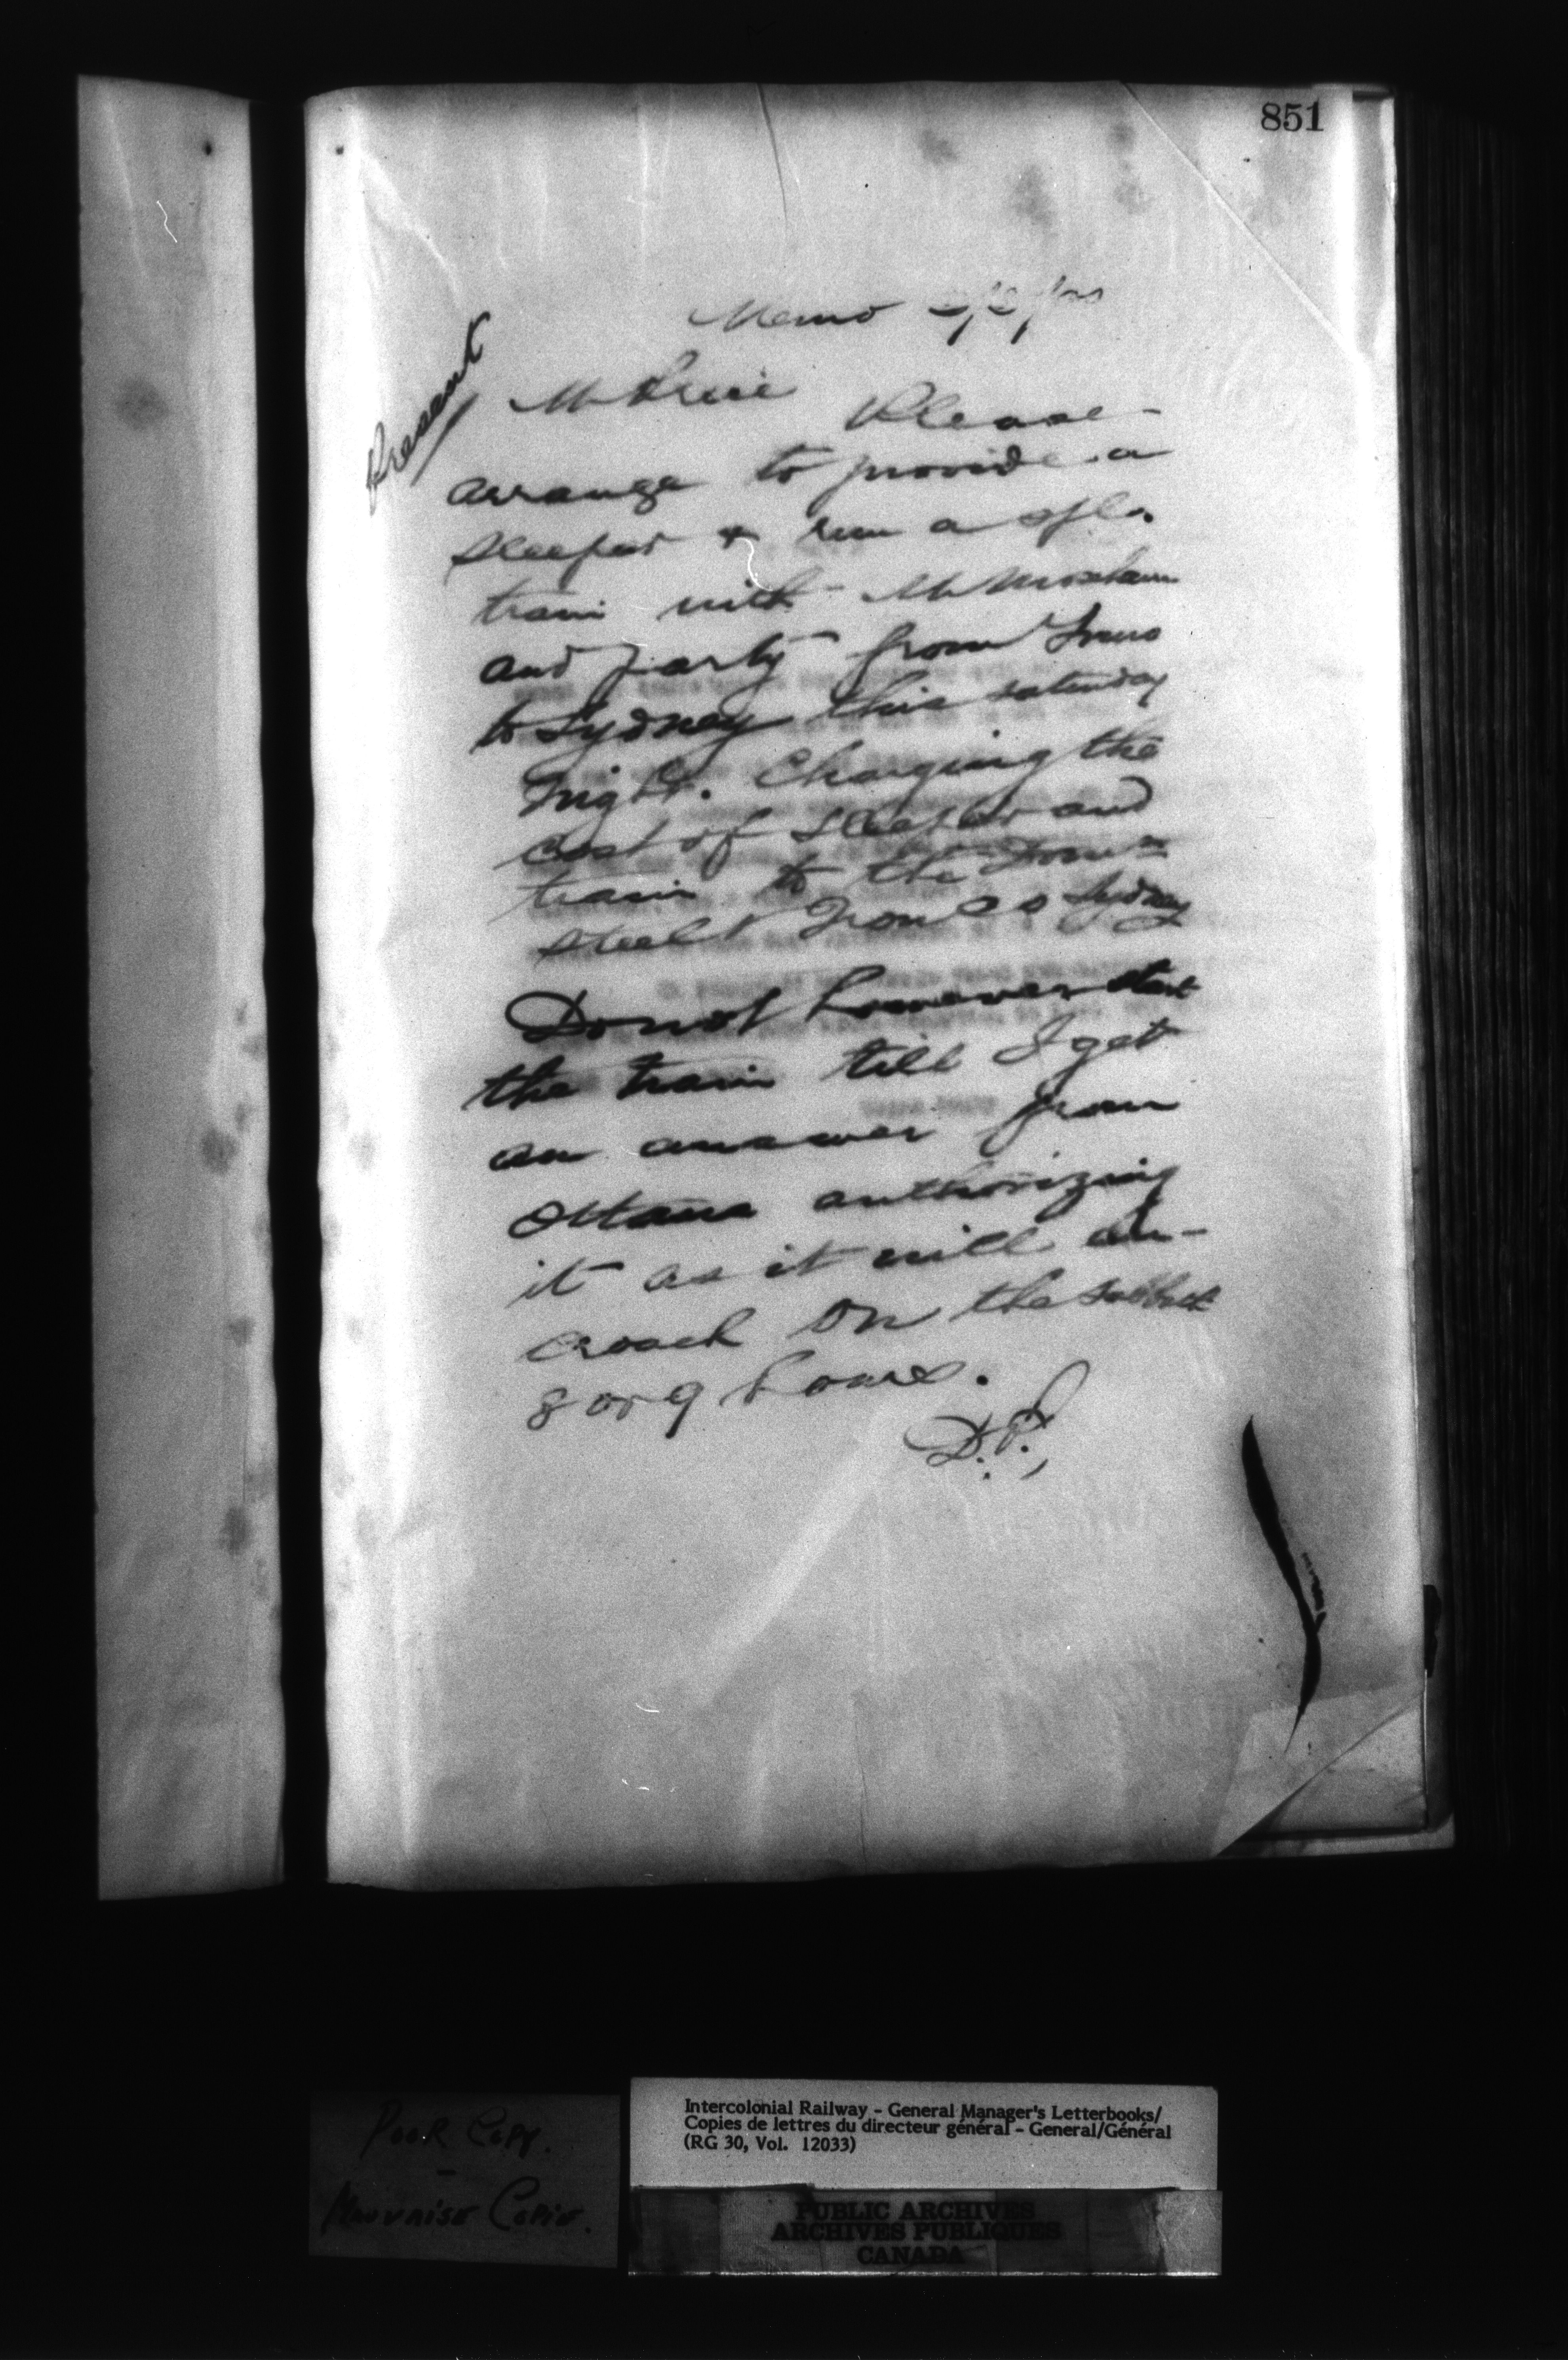 851
Memo
Present
Mr Price
Please
arrange to provide a
sleeper & run a spl.
train with Mr Moxham
and party from Truro
to Sydney this saturday
night. Charging the
cost of sleeper and
train to the Domn
steel & Iron Co Sydney
Do not however start
the train till I get
an answer from
Ottawa authorizing
it as it will en-
croach on the sabbath
8 or 9 hours.
D.P.
POOR COPY.
-
MAUVAISE COPIE.
Intercolonial Railway - General Manager's Letterbooks/
Copies de lettres du directeur général - General/Général
(RG 30, Vol. 12033)
PUBLIC ARCHIVES
ARCHIVES PUBLIQUES
CANADA